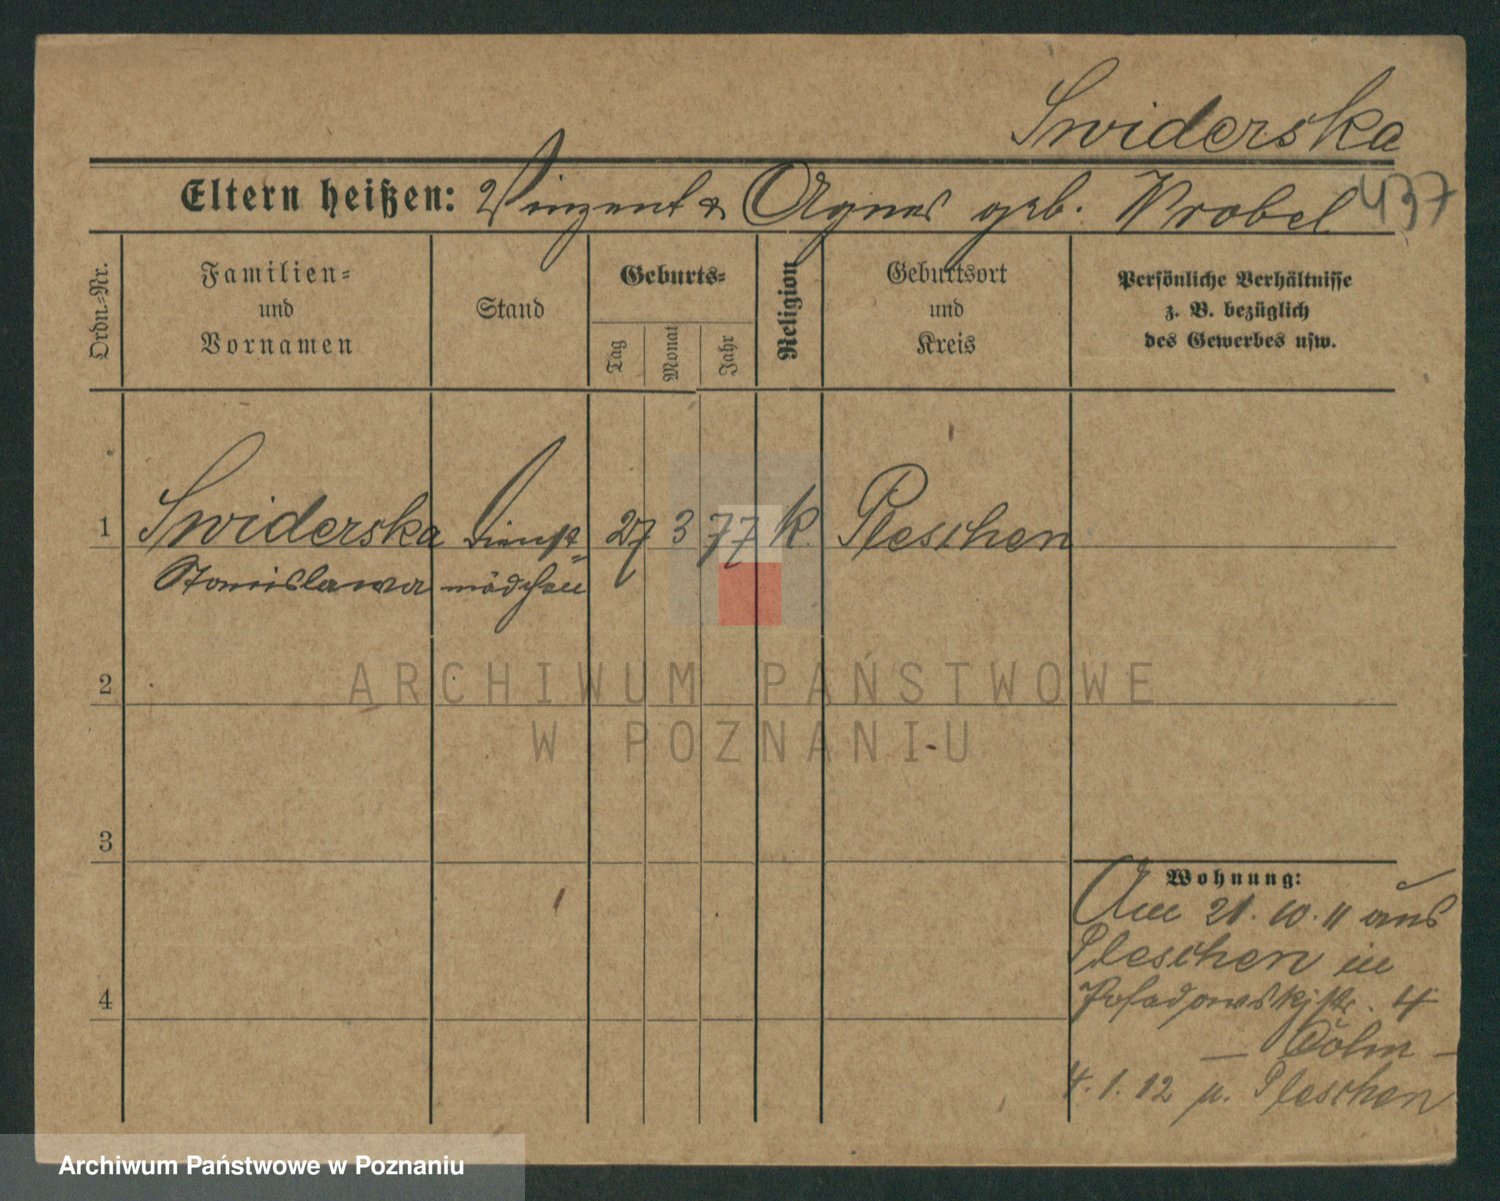 Swiderska
Eltern heißen: Vinzent & Agnes geb. Wrobel 437
Ordn.=Nr.
Familien=
und
Vornamen
Stand
Geburts=
Tag
Monat
Jahr
Religion
Geburtsort
und
Kreis
Persönliche Verhältnisse
z. B. bezüglich
des Gewerbes usw.
1 Swiderska Dienst= 27 3 77 k. Pleschen
Stanislawa mädchen
2
3
4
Wohnung:
Am 21.10.11 aus
Pleschen in
Posadowskystr. 4
4.1.12 n. Pleschen
ARCHIWUM PAŃSTWOWE
W POZNANIU
Archiwum Państwowe w Poznaniu